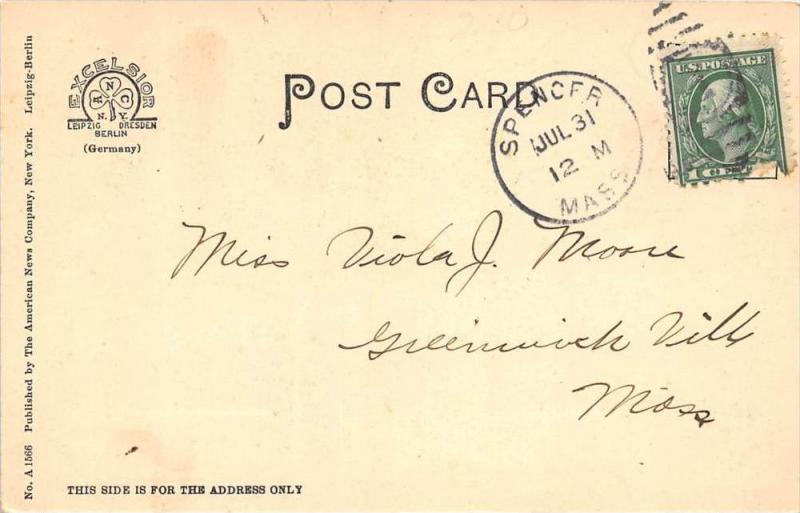 No. A 1566 Published by The American News Company, New York. Leipzig-Berlin
EXCELSIOR
A N C
N.Y.
LEIPZIG DRESDEN
BERLIN
(Germany)
POST CARD
SPENCER
JUL 31
12 M
MASS
U.S. POSTAGE
Miss Viola J. Moore
Greenwich Vill
Mass
THIS SIDE IS FOR THE ADDRESS ONLY